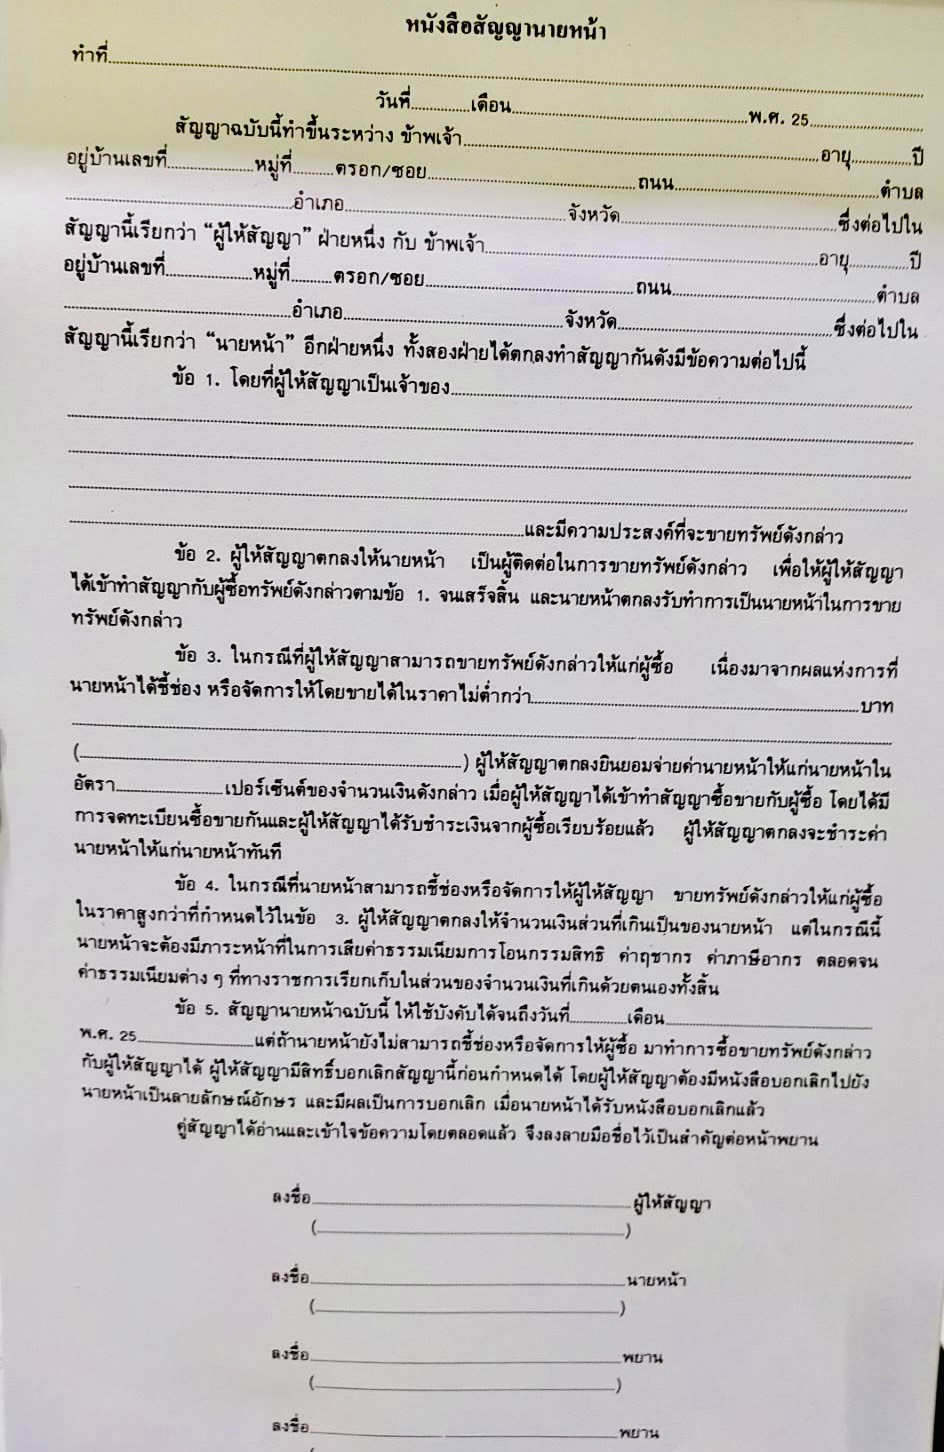 หนังสือสัญญานายหน้า
ทำที่
วันที่ เดือน พ.ศ. 25
สัญญาฉบับนี้ทำขึ้นระหว่าง ข้าพเจ้า อายุ ปี
อยู่บ้านเลขที่ หมู่ที่ ตรอก/ซอย ถนน ตำบล
อำเภอ จังหวัด ซึ่งต่อไปใน
สัญญานี้เรียกว่า “ผู้ให้สัญญา” ฝ่ายหนึ่ง กับ ข้าพเจ้า อายุ ปี
อยู่บ้านเลขที่ หมู่ที่ ตรอก/ซอย ถนน ตำบล
อำเภอ จังหวัด ซึ่งต่อไปใน
สัญญานี้เรียกว่า “นายหน้า” อีกฝ่ายหนึ่ง ทั้งสองฝ่ายได้ตกลงทำสัญญากันดังมีข้อความต่อไปนี้
ข้อ 1. โดยที่ผู้ให้สัญญาเป็นเจ้าของ
และมีความประสงค์ที่จะขายทรัพย์ดังกล่าว
ข้อ 2. ผู้ให้สัญญาตกลงให้นายหน้า เป็นผู้ติดต่อในการขายทรัพย์ดังกล่าว เพื่อให้ผู้ให้สัญญา
ได้เข้าทำสัญญากับผู้ซื้อทรัพย์ดังกล่าวตามข้อ 1. จนเสร็จสิ้น และนายหน้าตกลงรับทำการเป็นนายหน้าในการขาย
ทรัพย์ดังกล่าว
ข้อ 3. ในกรณีที่ผู้ให้สัญญาสามารถขายทรัพย์ดังกล่าวให้แก่ผู้ซื้อ เนื่องมาจากผลแห่งการที่
นายหน้าได้ชี้ช่อง หรือจัดการให้โดยขายได้ในราคาไม่ต่ำกว่า บาท
( ) ผู้ให้สัญญาตกลงยินยอมจ่ายค่านายหน้าให้แก่นายหน้าใน
อัตรา เปอร์เซ็นต์ของจำนวนเงินดังกล่าว เมื่อผู้ให้สัญญาได้เข้าทำสัญญาซื้อขายกับผู้ซื้อ โดยได้มี
การจดทะเบียนซื้อขายกันและผู้ให้สัญญาได้รับชำระเงินจากผู้ซื้อเรียบร้อยแล้ว ผู้ให้สัญญาตกลงจะชำระค่า
นายหน้าให้แก่นายหน้าทันที
ข้อ 4. ในกรณีที่นายหน้าสามารถชี้ช่องหรือจัดการให้ผู้ให้สัญญา ขายทรัพย์ดังกล่าวให้แก่ผู้ซื้อ
ในราคาสูงกว่าที่กำหนดไว้ในข้อ 3. ผู้ให้สัญญาตกลงให้จำนวนเงินส่วนที่เกินเป็นของนายหน้า แต่ในกรณีนี้
นายหน้าจะต้องมีภาระหน้าที่ในการเสียค่าธรรมเนียมการโอนกรรมสิทธิ ค่าฤชากร ค่าภาษีอากร ตลอดจน
ค่าธรรมเนียมต่าง ๆ ที่ทางราชการเรียกเก็บในส่วนของจำนวนเงินที่เกินด้วยตนเองทั้งสิ้น
ข้อ 5. สัญญานายหน้าฉบับนี้ ให้ใช้บังคับได้จนถึงวันที่ เดือน
พ.ศ. 25 แต่ถ้านายหน้ายังไม่สามารถชี้ช่องหรือจัดการให้ผู้ซื้อ มาทำการซื้อขายทรัพย์ดังกล่าว
กับผู้ให้สัญญาได้ ผู้ให้สัญญามีสิทธิ์บอกเลิกสัญญานี้ก่อนกำหนดได้ โดยผู้ให้สัญญาต้องมีหนังสือบอกเลิกไปยัง
นายหน้าเป็นลายลักษณ์อักษร และมีผลเป็นการบอกเลิก เมื่อนายหน้าได้รับหนังสือบอกเลิกแล้ว
คู่สัญญาได้อ่านและเข้าใจข้อความโดยตลอดแล้ว จึงลงลายมือชื่อไว้เป็นสำคัญต่อหน้าพยาน
ลงชื่อ ผู้ให้สัญญา
( )
ลงชื่อ นายหน้า
( )
ลงชื่อ พยาน
( )
ลงชื่อ พยาน